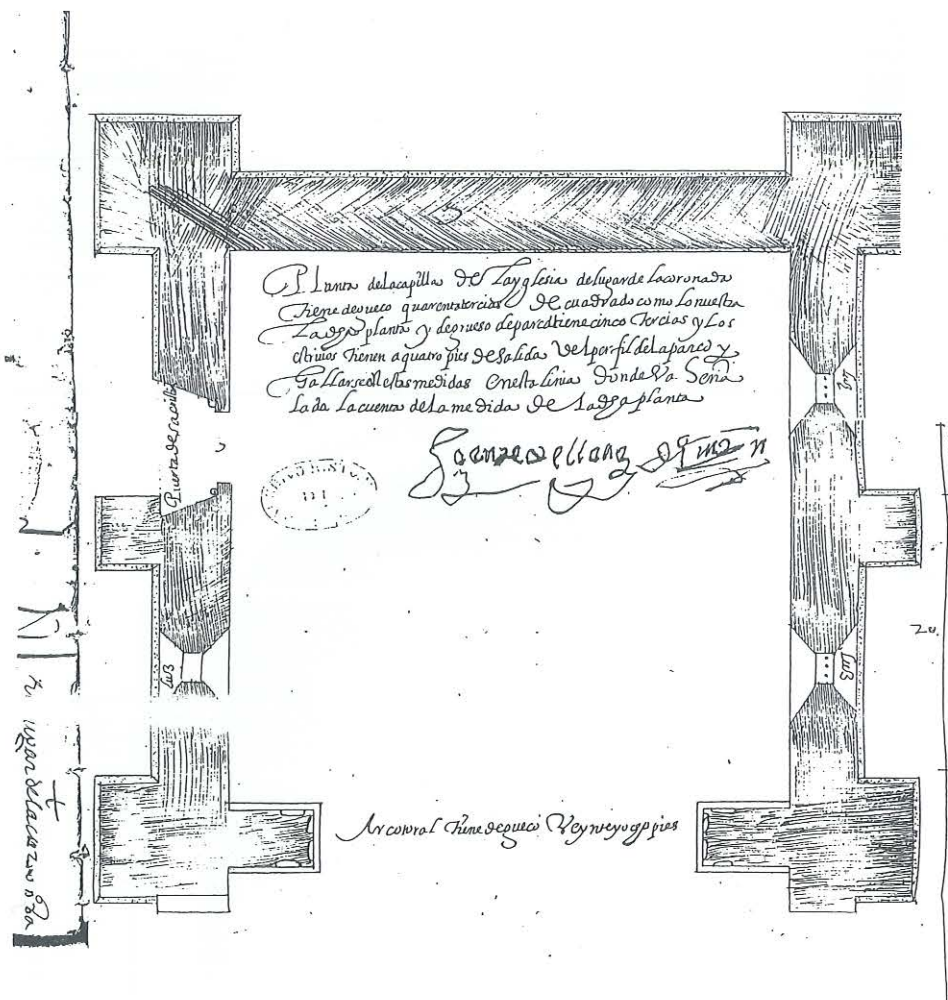 Planta de la capilla de la yglesia del lugar de la coronada
tiene de gueco quarenta tercias de cuadrado como lo muestra
la dha planta y de grueso de pared tiene cinco tercias y los
estrivos tienen a quatro pies de salida del perfil de la pared y
hallarse an estas medidas en esta linia donde va Seña
lada la cuenta de la medida de la dha planta
Puerta de sacristia
luz
luz
luz
Arco toral tiene de gueco Veynte y ocho pies
lugar de la coronada